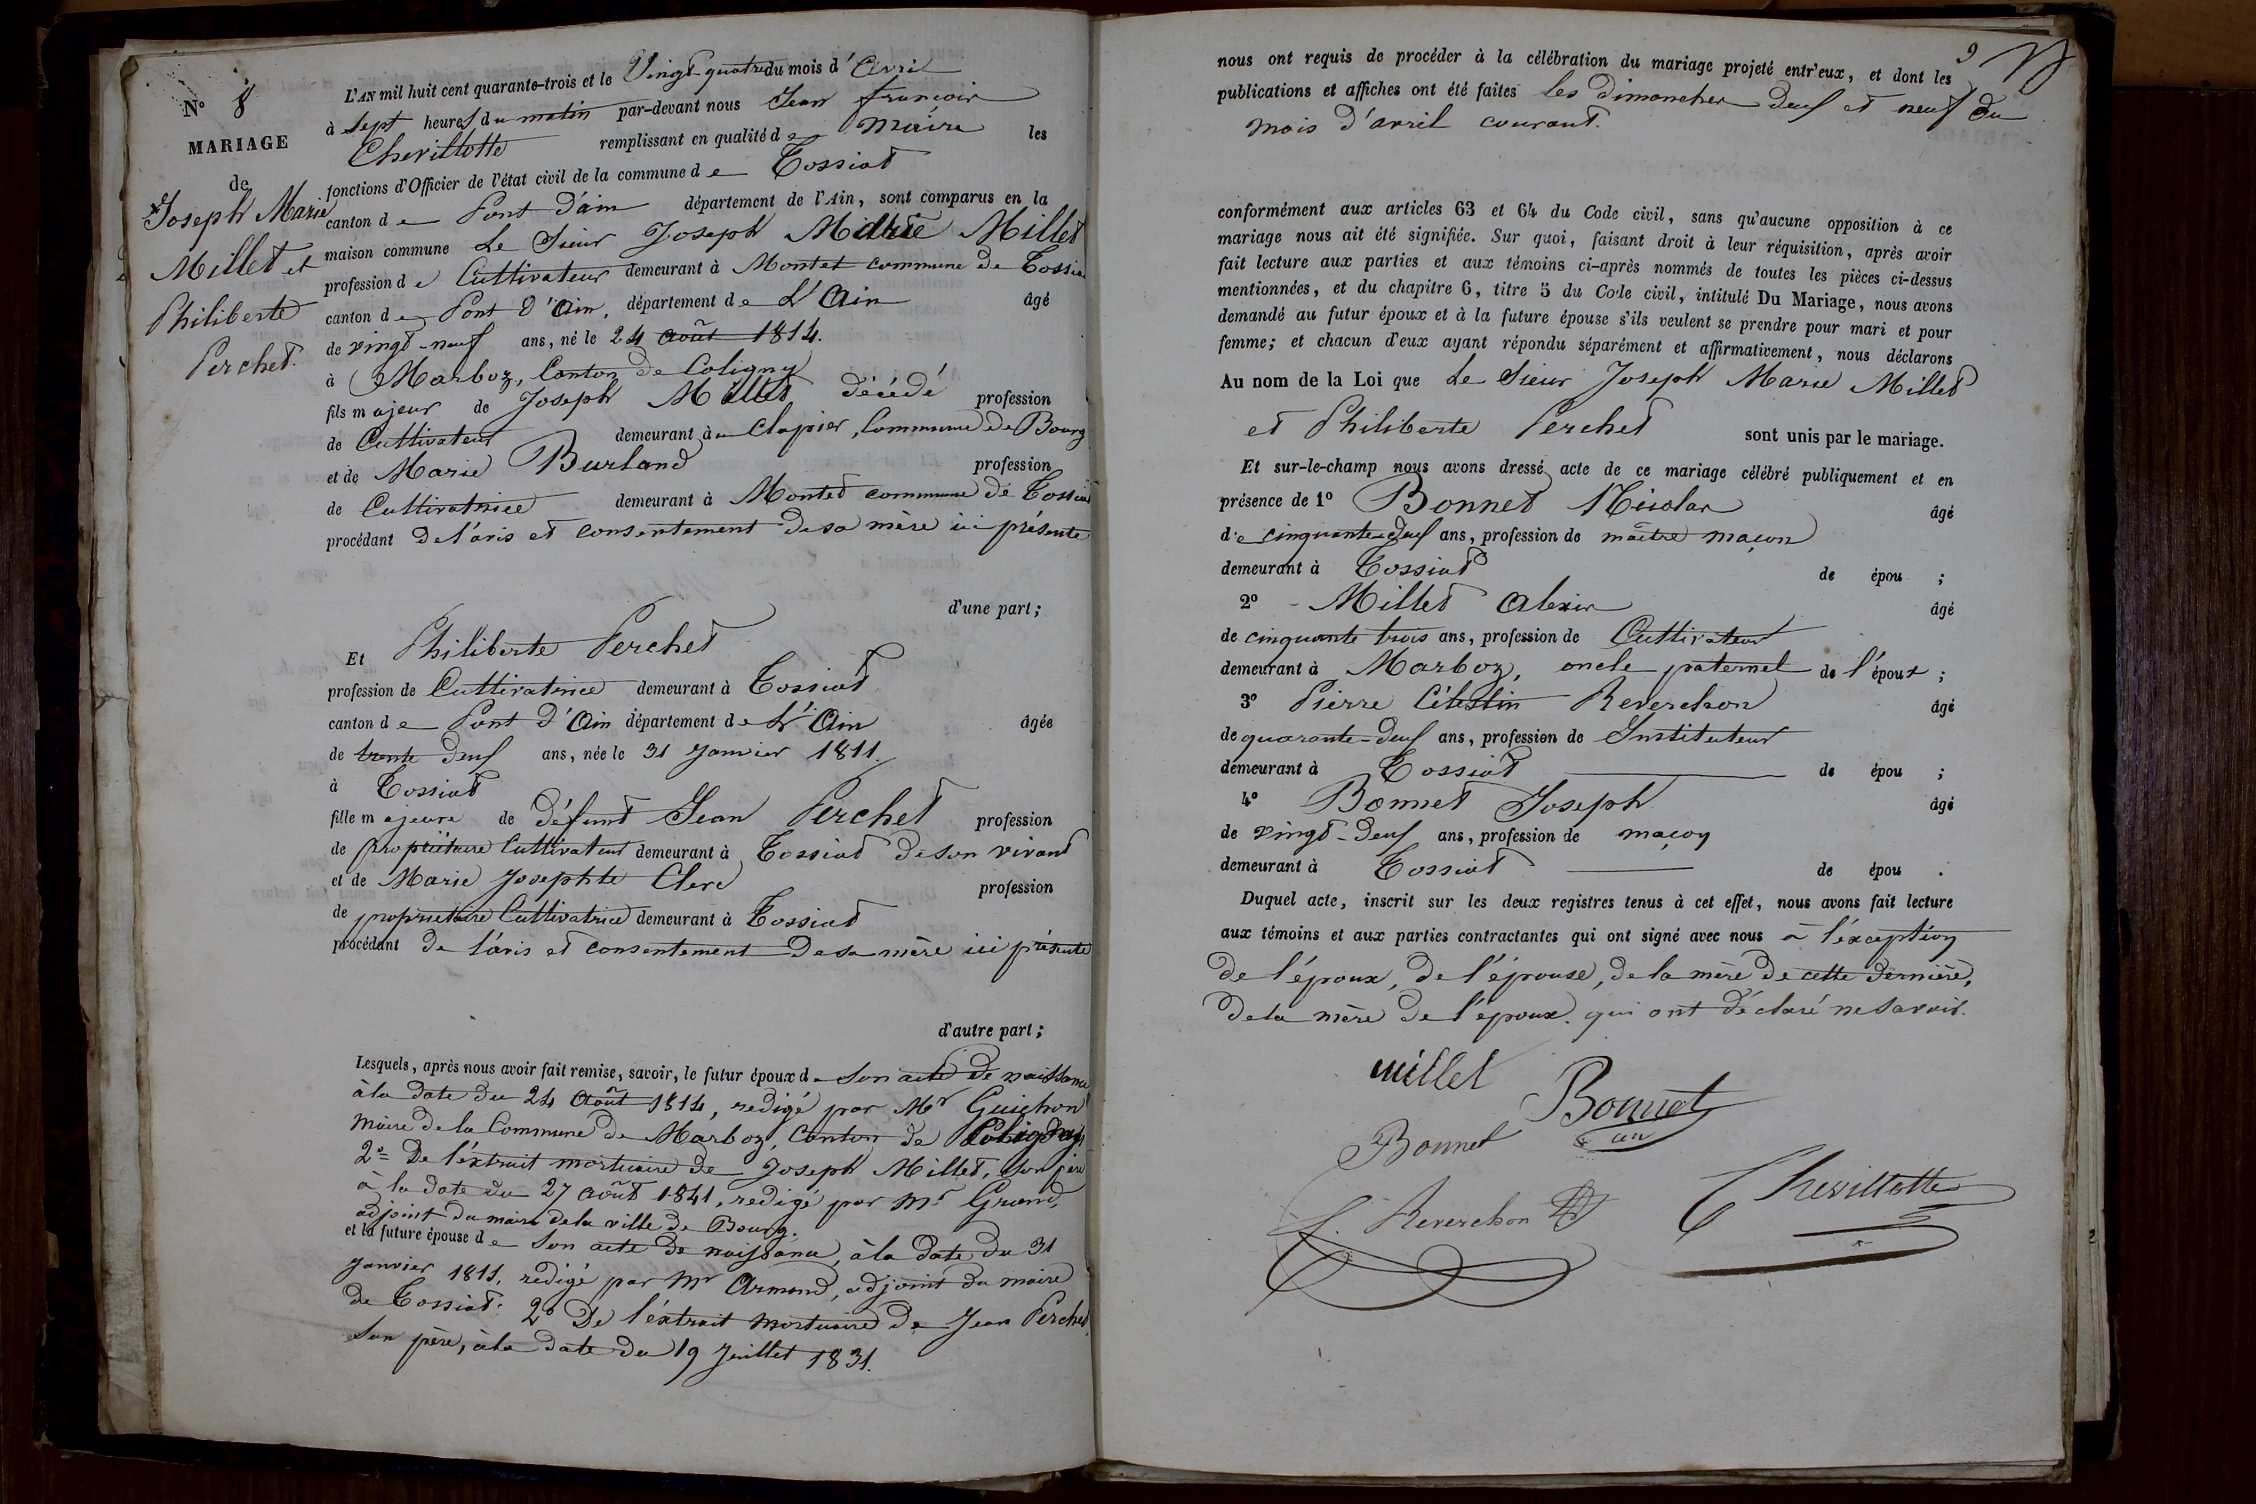 N° 8
MARIAGE
de
Joseph Marie
Millet et
Philiberte
Perchet.
L'AN mil huit cent quarante-trois et le Vingt-quatre du mois d'Avril
à Sept heures du matin par-devant nous Jean françois
Chevillotte remplissant en qualité de Maire les
fonctions d'Officier de l'état civil de la commune de Tossiat
canton de Pont d'ain département de l'Ain, sont comparus en la
maison commune Le Sieur Joseph Marie Millet
profession de Cultivateur demeurant à Montet commune de Tossiat
canton de Pont d'Ain, département de L'Ain âgé
de vingt-neuf ans, né le 24 Août 1814.
à Marboz, Canton de Coligny
fils majeur de Joseph Millet décédé profession
de Cultivateur demeurant au Clapier, Commune de Bourg
et de Marie Burland profession
de Cultivatrice demeurant à Montet commune de Tossiat
procédant de l'avis et consentement de sa mère ici présente
d'une part;
Et Philiberte Perchet
profession de Cultivatrice demeurant à Tossiat
canton de Pont d'Ain département de L'Ain âgée
de trente deux ans, née le 31 Janvier 1811.
à Tossiat
fille majeure de défunt Jean Perchet profession
de propriétaire Cultivateur demeurant à Tossiat de son vivant
et de Marie Josephte Clerc profession
de propriétaire Cultivatrice demeurant à Tossiat
procédant de l'avis et consentement de sa mère ici présente
d'autre part;
Lesquels, après nous avoir fait remise, savoir, le futur époux de son acte de naissance
à la date du 24 Août 1814, redigé par Mr Guichon
Maire de la Commune de Marboz, Canton de Coligny
2° De l'extrait mortuaire de Joseph Millet, son père
à la date du 27 Août 1841, redigé par Mr Grand,
adjoint du maire de la ville de Bourg.
et la future épouse de son acte de naissance, à la date du 31
Janvier 1811, redigé par Mr Armand, adjoint du maire
de Tossiat. 2° De l'extrait mortuaire de Jean Perchet
son père, à la date du 19 Juillet 1831.
9
nous ont requis de procéder à la célébration du mariage projeté entr'eux, et dont les
publications et affiches ont été faites les dimanches deux et neuf du
mois d'avril courant.
conformément aux articles 63 et 64 du Code civil, sans qu'aucune opposition à ce
mariage nous ait été signifiée. Sur quoi, faisant droit à leur réquisition, après avoir
fait lecture aux parties et aux témoins ci-après nommés de toutes les pièces ci-dessus
mentionnées, et du chapitre 6, titre 5 du Code civil, intitulé Du Mariage, nous avons
demandé au futur époux et à la future épouse s'ils veulent se prendre pour mari et pour
femme; et chacun d'eux ayant répondu séparément et affirmativement, nous déclarons
Au nom de la Loi que Le Sieur Joseph Marie Millet
et Philiberte Perchet sont unis par le mariage.
Et sur-le-champ nous avons dressé acte de ce mariage célébré publiquement et en
présence de 1° Bonnet Nicolas âgé
de cinquante-deux ans, profession de maître maçon
demeurant à Tossiat de épou ;
2° Millet Alexis âgé
de cinquante trois ans, profession de Cultivateur
demeurant à Marboz, oncle paternel de l'époux ;
3° Pierre Célestin Reverchon âgé
de quarante-deux ans, profession de Instituteur
demeurant à Tossiat de épou ;
4° Bonnet Joseph âgé
de vingt-deux ans, profession de maçon
demeurant à Tossiat de épou .
Duquel acte, inscrit sur les deux registres tenus à cet effet, nous avons fait lecture
aux témoins et aux parties contractantes qui ont signé avec nous à l'exception
de l'époux, de l'épouse, de la mère de cette dernière,
de la mère de l'époux. qui ont déclaré ne savoir.
Millet
Bonnet
Bonnet
Reverchon
Chevillotte